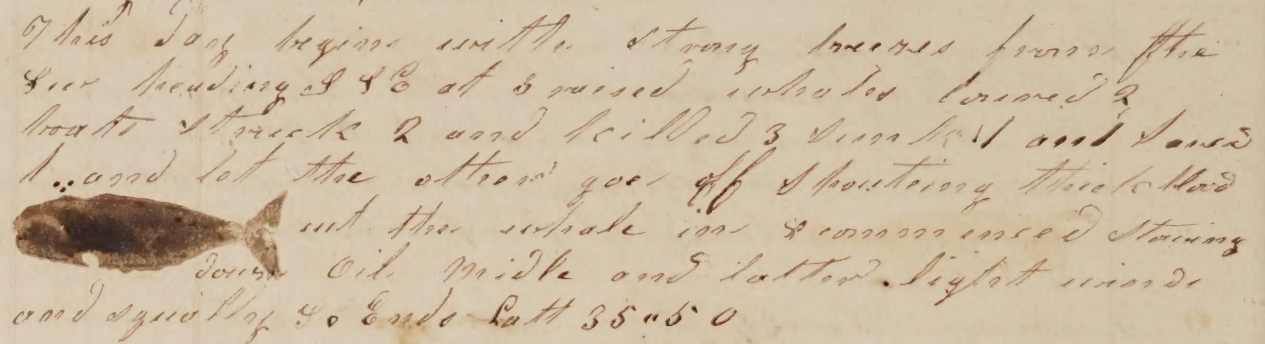 This day begins with strong breezes from the
SW heading SSE at 3 raised whales lowred 2
boats struck 2 and killed 3 sunk 1 and saved
1 .. and let the other goe off spouteing thick blod
cut the whale in & commenced stowing
down Oil Midle and latter light winds
and squally So Ends Latt 35"50